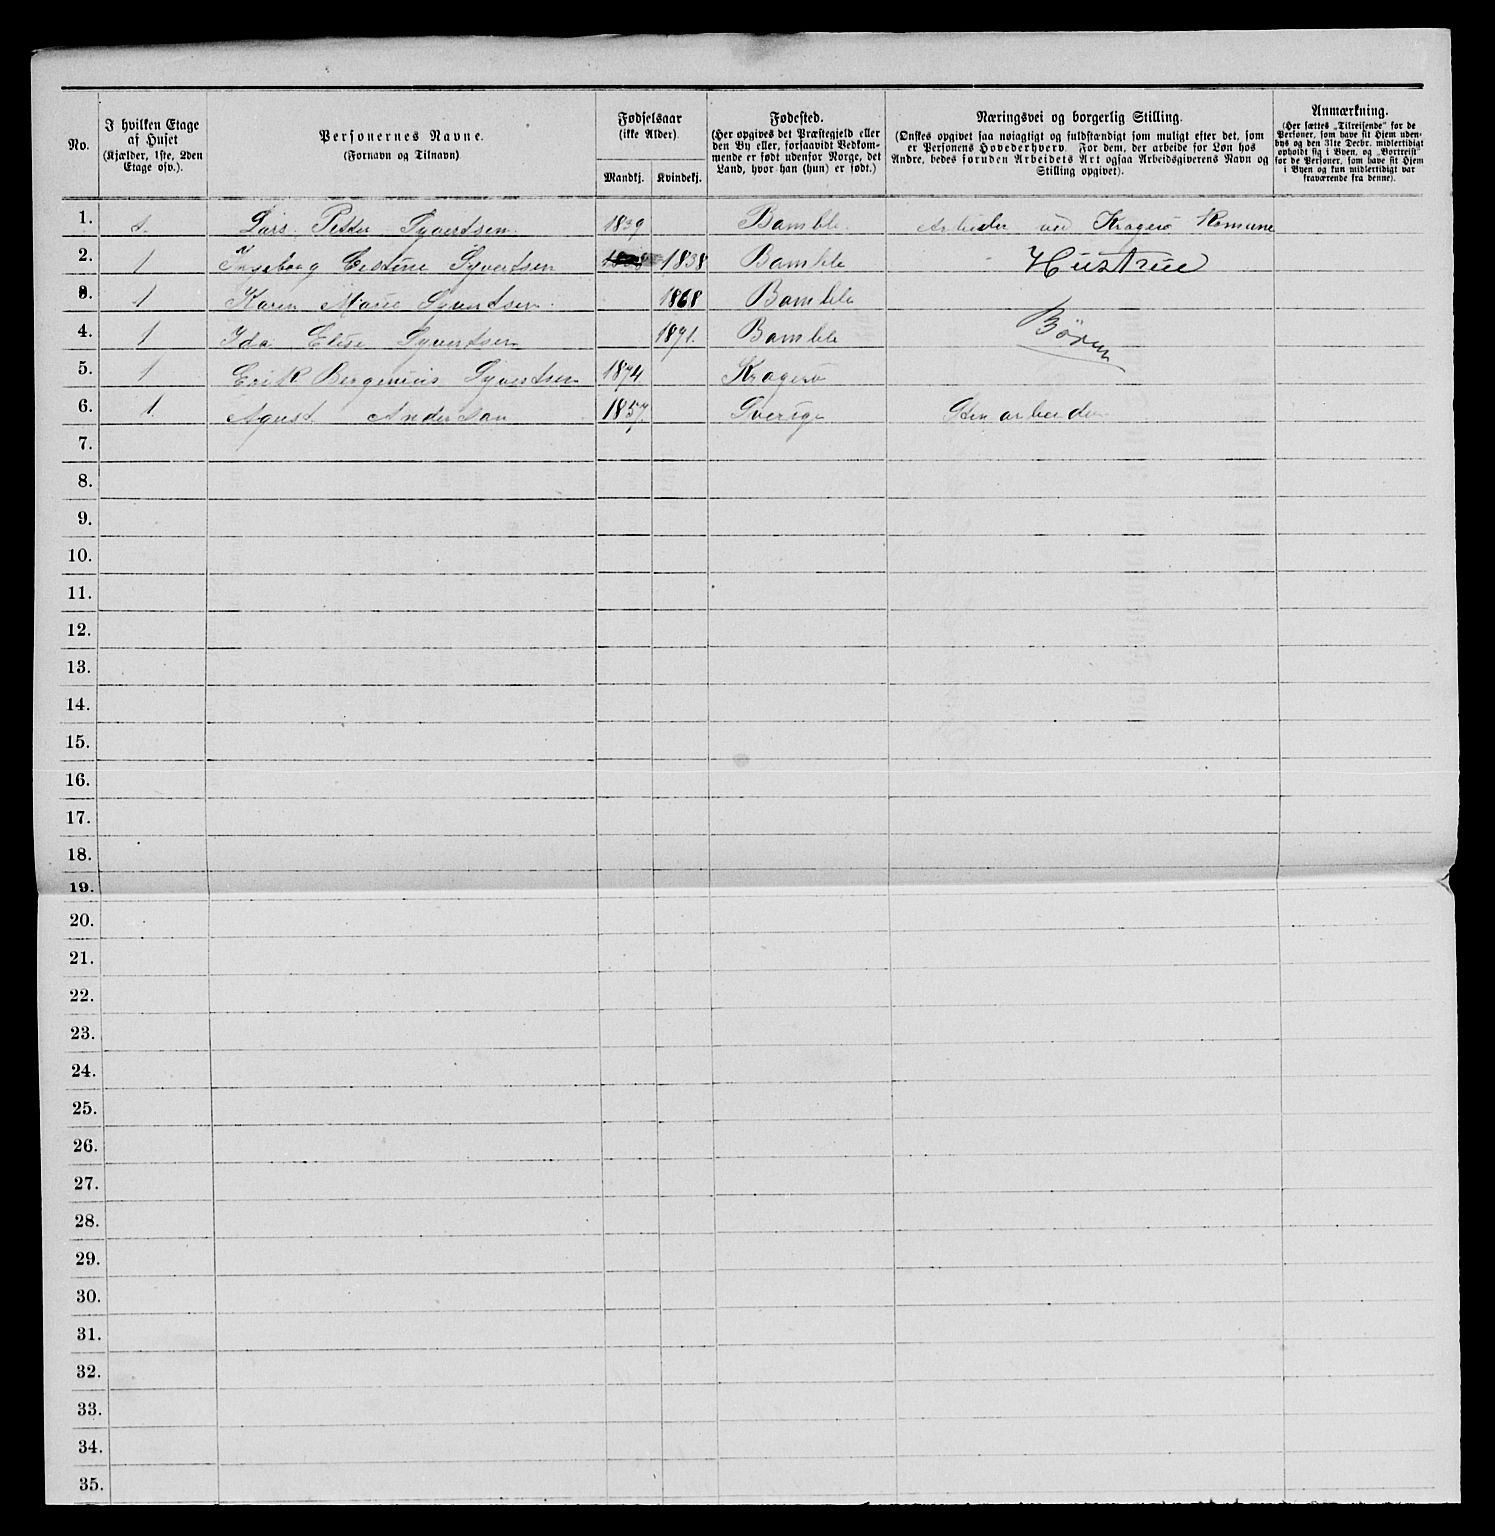 No.
I hvilken Etage af Huset
(Kjælder, 1ste, 2den Etage osv.).
Personernes Navne.
(Fornavn og Tilnavn)
Fødselsaar
(ikke Alder).
Mandkj. Kvindekj.
Fødested.
(Her opgives det Præstegjeld eller
den By eller, forsaavidt Vedkom-
mende er født udenfor Norge, det
Land, hvor han (hun) er født.)
Næringsvei og borgerlig Stilling.
(Ønskes opgivet saa nøiagtigt og fuldstændigt som muligt efter det, som
er Personens Hovederhverv. For dem, der arbeide for Løn hos
Andre, bedes foruden Arbeidets Art ogsaa Arbeidsgiverens Navn og
Stilling opgivet).
Anmærkning.
(Her sættes „Tilreisende“ for de
Personer, som have sit Hjem uden-
bys og den 31te Decbr. midlertidigt
opholdt sig i Byen, og „Bortreist“
for de Personer, som have sit Hjem
i Byen og kun midlertidigt var
fraværende fra denne).
1. 1. Lars Petter Syvertsen. 1839 Bamble. Arbeider ved Kragerø Komune
2. 1 Ingeborg Syvertsen 1838 Bamble Hustrue
3. 1 Karen Marie Syvertsen. 1868 Bamble
4. 1 Ida Elise Syvertsen 1871. Bamble Børen
5. 1 Erik Syvertsen 1874 Kragerø
6. 1 Agust Anderson 1857. Sverige Stenarbeider
7.
8.
9.
10.
11.
12.
13.
14.
15.
16.
17.
18.
19.
20.
21.
22.
23.
24.
25.
26.
27.
28.
29.
30.
31.
32.
33.
34.
35.